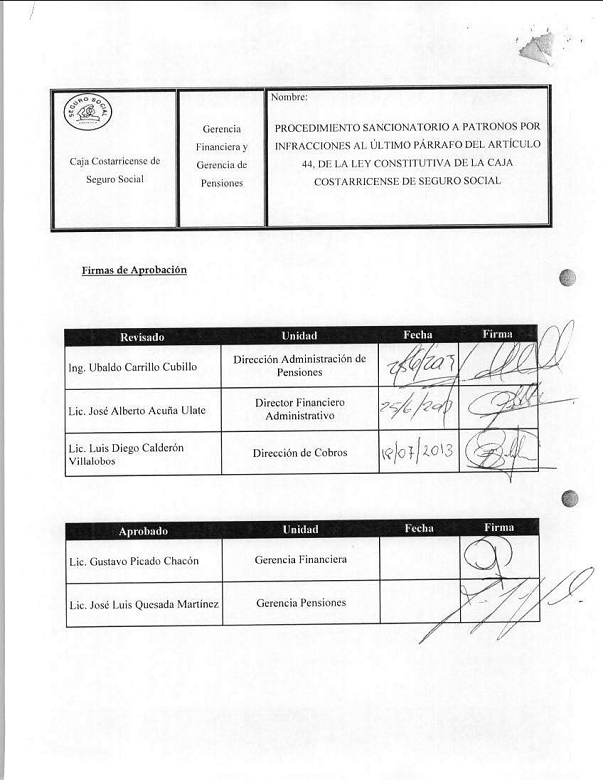 SEGURO SOCIAL
Caja Costarricense de
Seguro Social
Gerencia
Financiera y
Gerencia de
Pensiones
Nombre:
PROCEDIMIENTO SANCIONATORIO A PATRONOS POR
INFRACCIONES AL ÚLTIMO PÁRRAFO DEL ARTÍCULO
44, DE LA LEY CONSTITUTIVA DE LA CAJA
COSTARRICENSE DE SEGURO SOCIAL
Firmas de Aprobación
Revisado Unidad Fecha Firma
Ing. Ubaldo Carrillo Cubillo
Dirección Administración de
Pensiones
Lic. José Alberto Acuña Ulate
Director Financiero
Administrativo
Lic. Luis Diego Calderón
Villalobos
Dirección de Cobros
18/07/2013
Aprobado Unidad Fecha Firma
Lic. Gustavo Picado Chacón Gerencia Financiera
Lic. José Luis Quesada Martínez Gerencia Pensiones